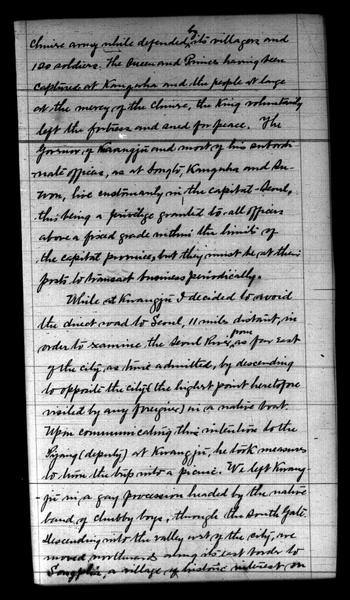 Chinese army while defended by its villagers and
120 soldiers. The Queen and Princes having been
captured at Kangwha and the people at large
at the mercy of the Chinese, the King voluntarily
left the fortress and sued for peace. The
Governor of Kwangju and most of his subordi-
nate officers, as at Songto, Kangwha and Su-
won, live customarily in the capital - Seoul,
this being a privilege granted to all officers
above a fixed grade within the limits of
the capital province, but they must be at their
posts to transact business periodically.
While at Kwangju I decided to avoid
the direct road to Seoul, 11 miles distant, in
order to examine the Seoul River, from as far East
of the city, as time admitted, by descending
to opposite the city (the highest point heretofore
visited by any foreigner) in a native boat.
Upon communicating this intention to the
(deputy) at Kwangju, he took measures
to turn the trip into a picnic. We left Kwang-
ju in a gay procession headed by the native
band of chubby boys, through the South Gate.
Descending into the valley west of the city, we
moved northward along its east border to
a village of historic interest on